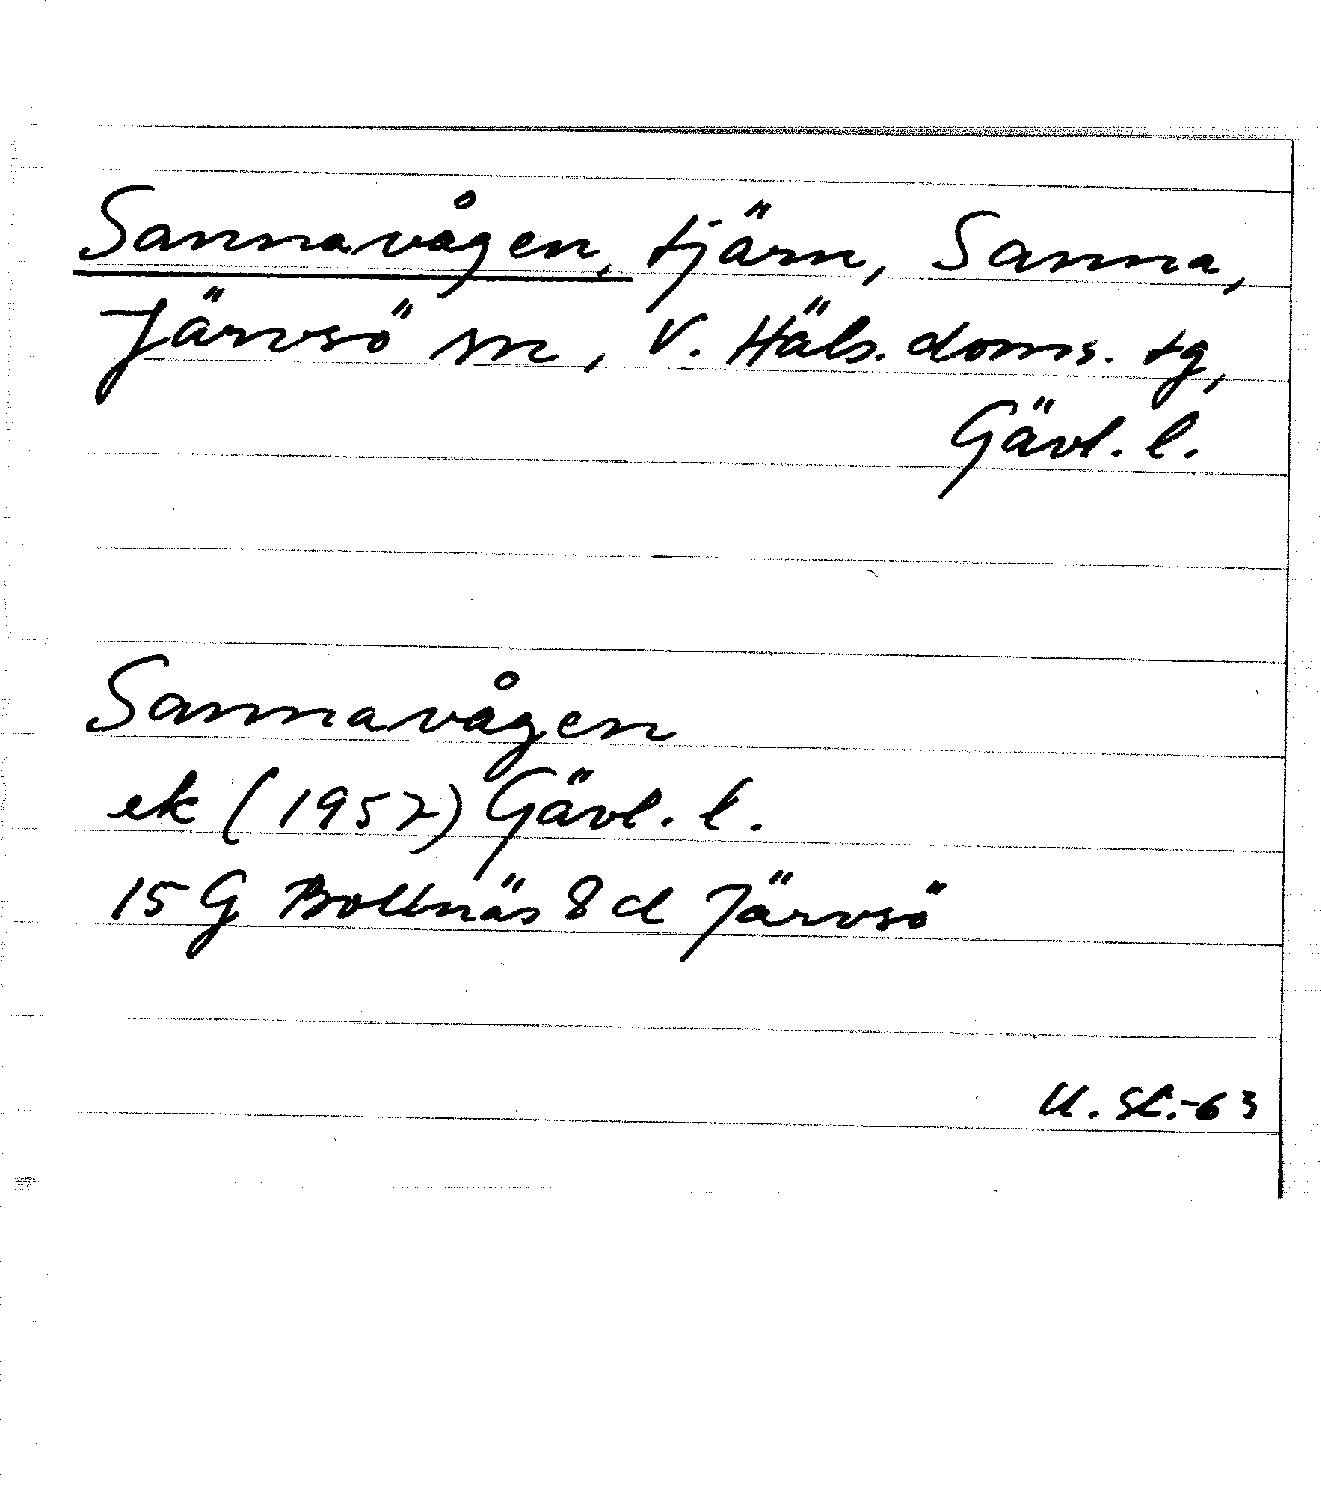 Sannavågen, tjärn, Sanna,
Järvsö sn, V. Häls. doms. tg,
Gävl. l.
Sannavågen
ek (1957) Gävl. l.
15 G Bollnäs 8 d Järvsö
U. St.-63